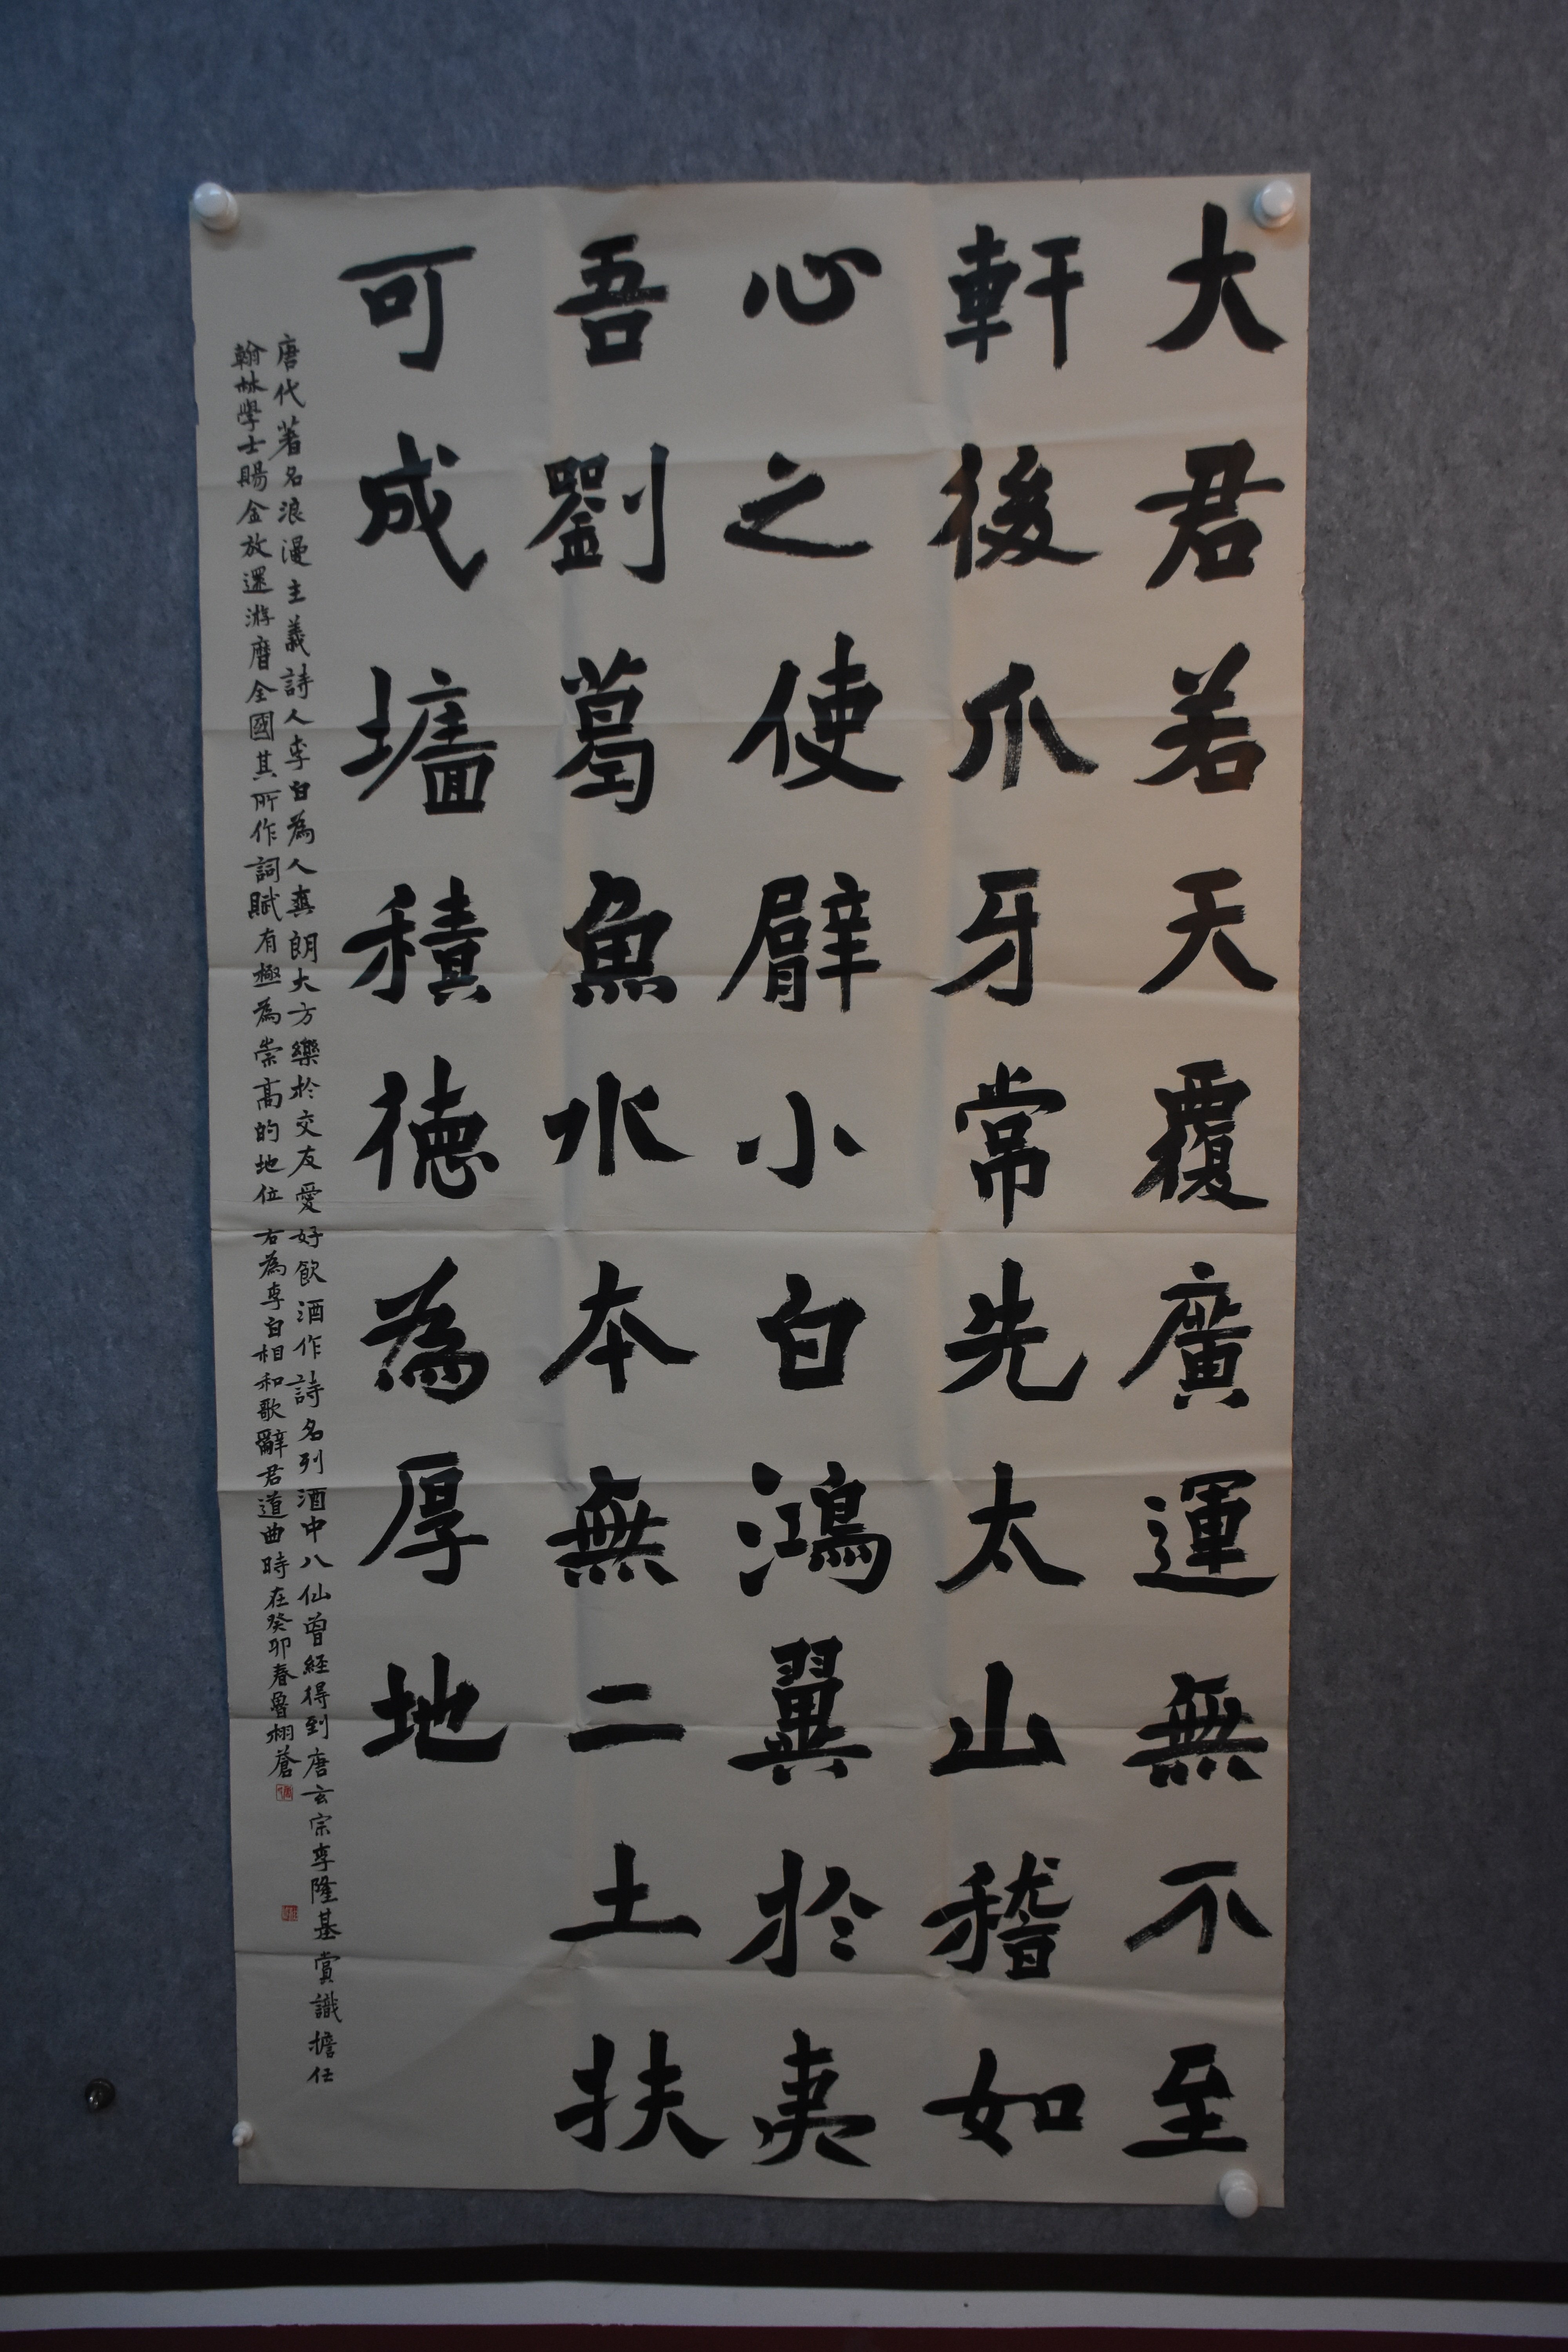 大君若天覆廣運無不至
軒後爪牙常先太山稽如
心之使臂小白鴻翼於夷
吾劉葛魚水本無二土扶
可成墻積德為厚地
唐代著名浪漫主義詩人李白為人爽朗大方樂於交友愛好飲酒作詩名列酒中八仙曾經得到唐玄宗李隆基賞識擔任
翰林學士賜金放還游曆全國其所作詞賦有極為崇高的地位 右為李白相和歌辭君道曲時在癸卯春魯栩蒼